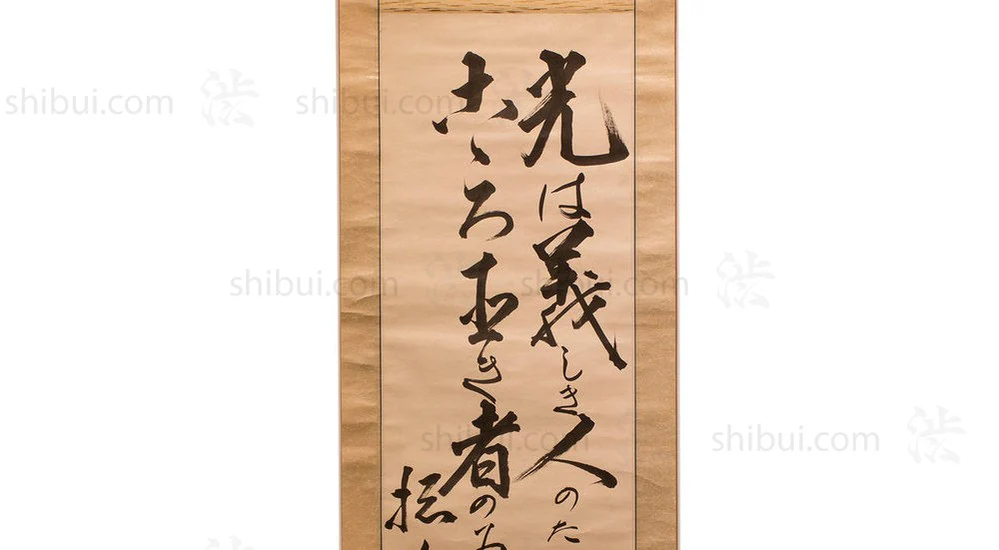 光は義しき人のた
こゝろ直き者の
shibui.com
shibui.com
shibui.com
shibui.com
shibui.com
shibui.com